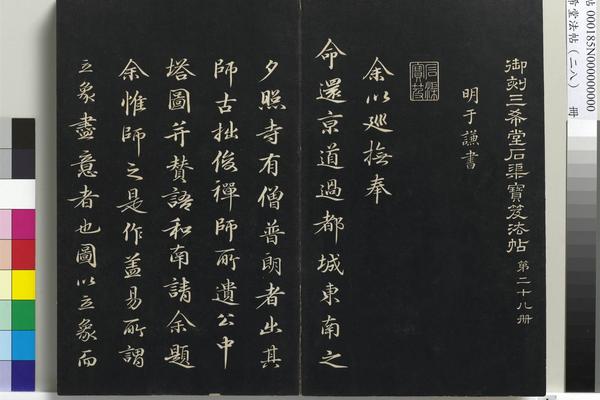 帖 000185N0000000000
希堂法帖(二八)
御刻三希堂石渠寶笈法帖 第二十八册
明于謙書
石渠寶笈
余以巡撫奉
命還京道過都城東南之
夕照寺有僧普朗者出其
師古拙俊禪師所遺公中
塔圖并贊語和南請余題
余惟師之是作蓋易所謂
立象盡意者也圖以立象而